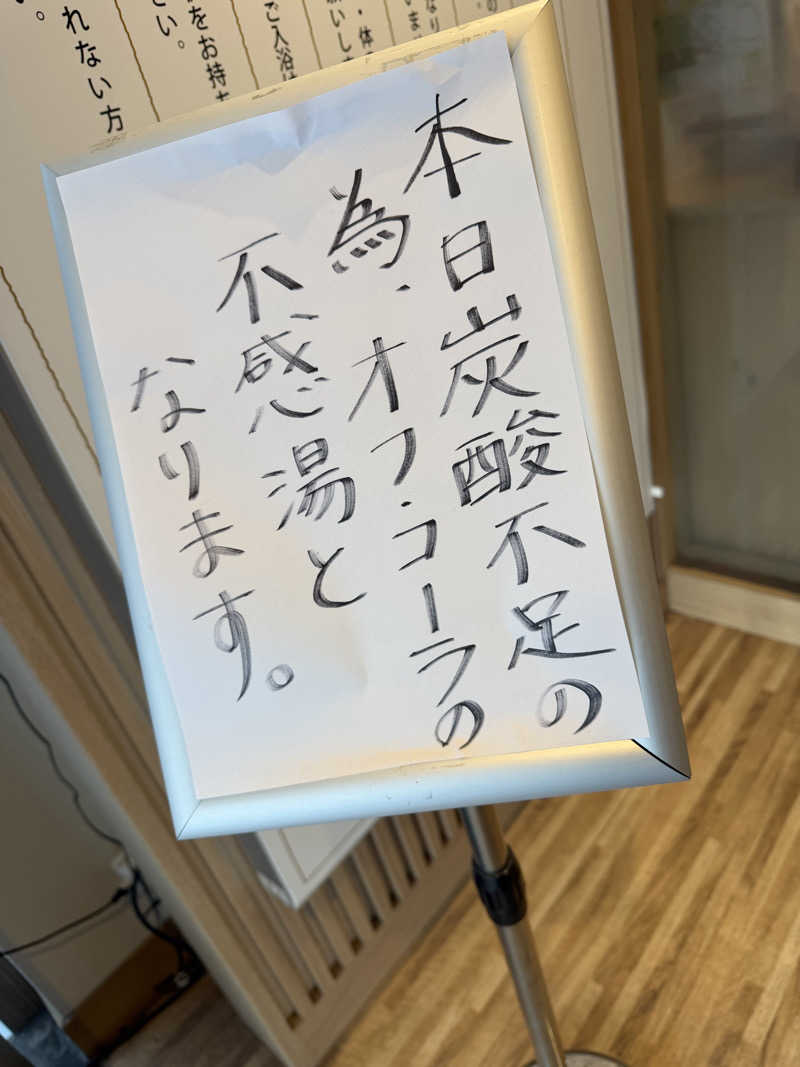 本日炭酸不足の
為、オフ.コーラの
不感湯と
なります。
れない方
をお持ち
さい。
ご入浴は
・体
願いします